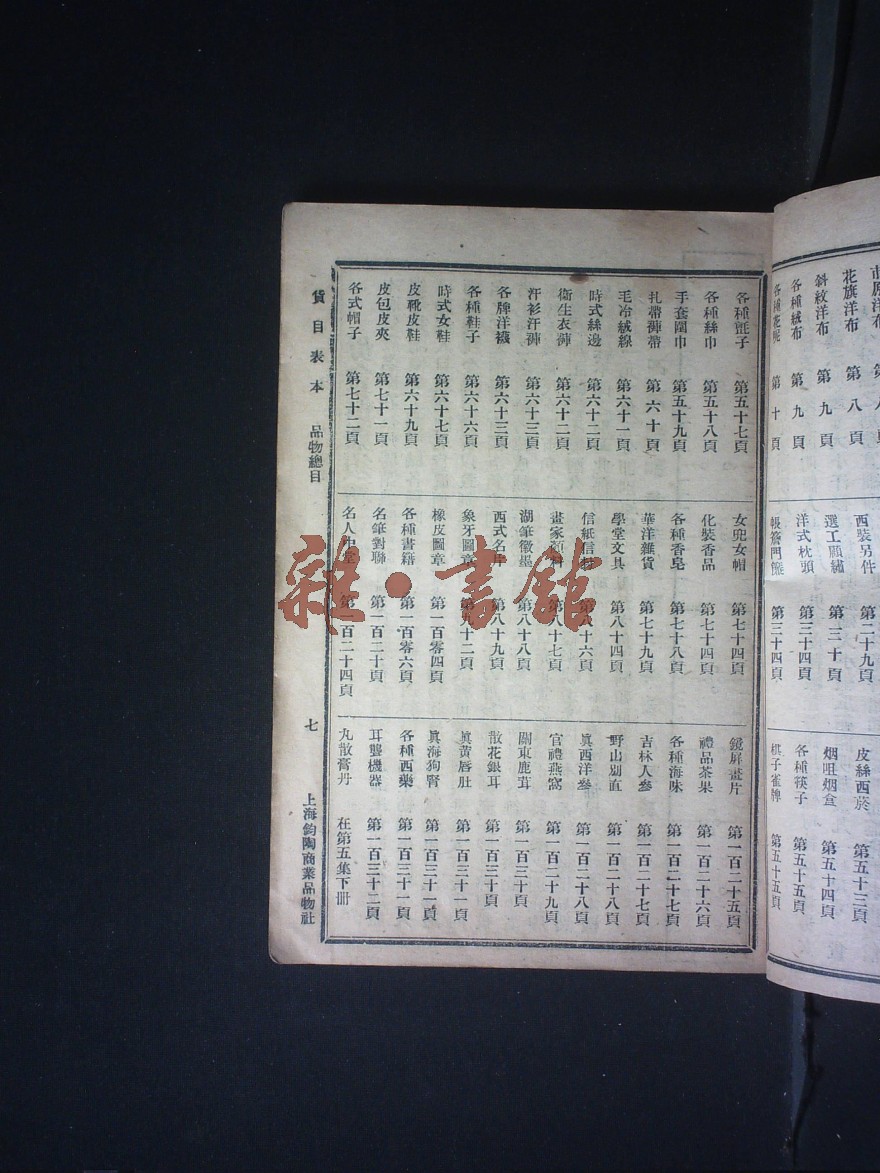 花旗洋布 第八頁
斜紋洋布 第九頁
各種絨布 第九頁
各種花呢 第十頁
西裝另件 第二十九頁
選工顧繡 第三十頁
洋式枕頭 第三十四頁
帳簷門簾 第三十四頁
皮絲西菸 第五十三頁
烟咀烟盒 第五十四頁
各種筷子 第五十五頁
棋子雀牌 第五十五頁
各種氈子 第五十七頁
各種絲巾 第五十八頁
手套圍巾 第五十九頁
扎帶褲帶 第六十頁
毛冷絨線 第六十一頁
時式絲邊 第六十二頁
衛生衣褲 第六十二頁
汗衫汗褲 第六十三頁
各牌洋襪 第六十三頁
各種鞋子 第六十六頁
時式女鞋 第六十七頁
皮靴皮鞋 第六十九頁
皮包皮夾 第七十一頁
各式帽子 第七十二頁
女兜女帽 第七十四頁
化裝香品 第七十四頁
各種香皂 第七十八頁
華洋雜貨 第七十九頁
學堂文具 第八十四頁
信紙信 第八十六頁
畫家顏料 第八十七頁
湖筆徽墨 第八十八頁
西式名片 第八十九頁
象牙圖章 第九十二頁
橡皮圖章 第一百零四頁
各種書籍 第一百零六頁
名筆對聯 第一百二十頁
名人中堂 第一百二十四頁
鏡屏畫片 第一百二十五頁
禮品茶果 第一百二十六頁
各種海味 第一百二十七頁
吉林人參 第一百二十七頁
野山別直 第一百二十八頁
眞西洋參 第一百二十八頁
官禮燕窩 第一百二十九頁
關東鹿茸 第一百三十頁
散花銀耳 第一百三十頁
眞黃唇肚 第一百三十一頁
眞海狗腎 第一百三十一頁
各種西藥 第一百三十一頁
耳聾機器 第一百三十二頁
丸散膏丹 在第五集下冊
貨目表本 品物總目 七 上海鈞陶商業品物社
雜·書館